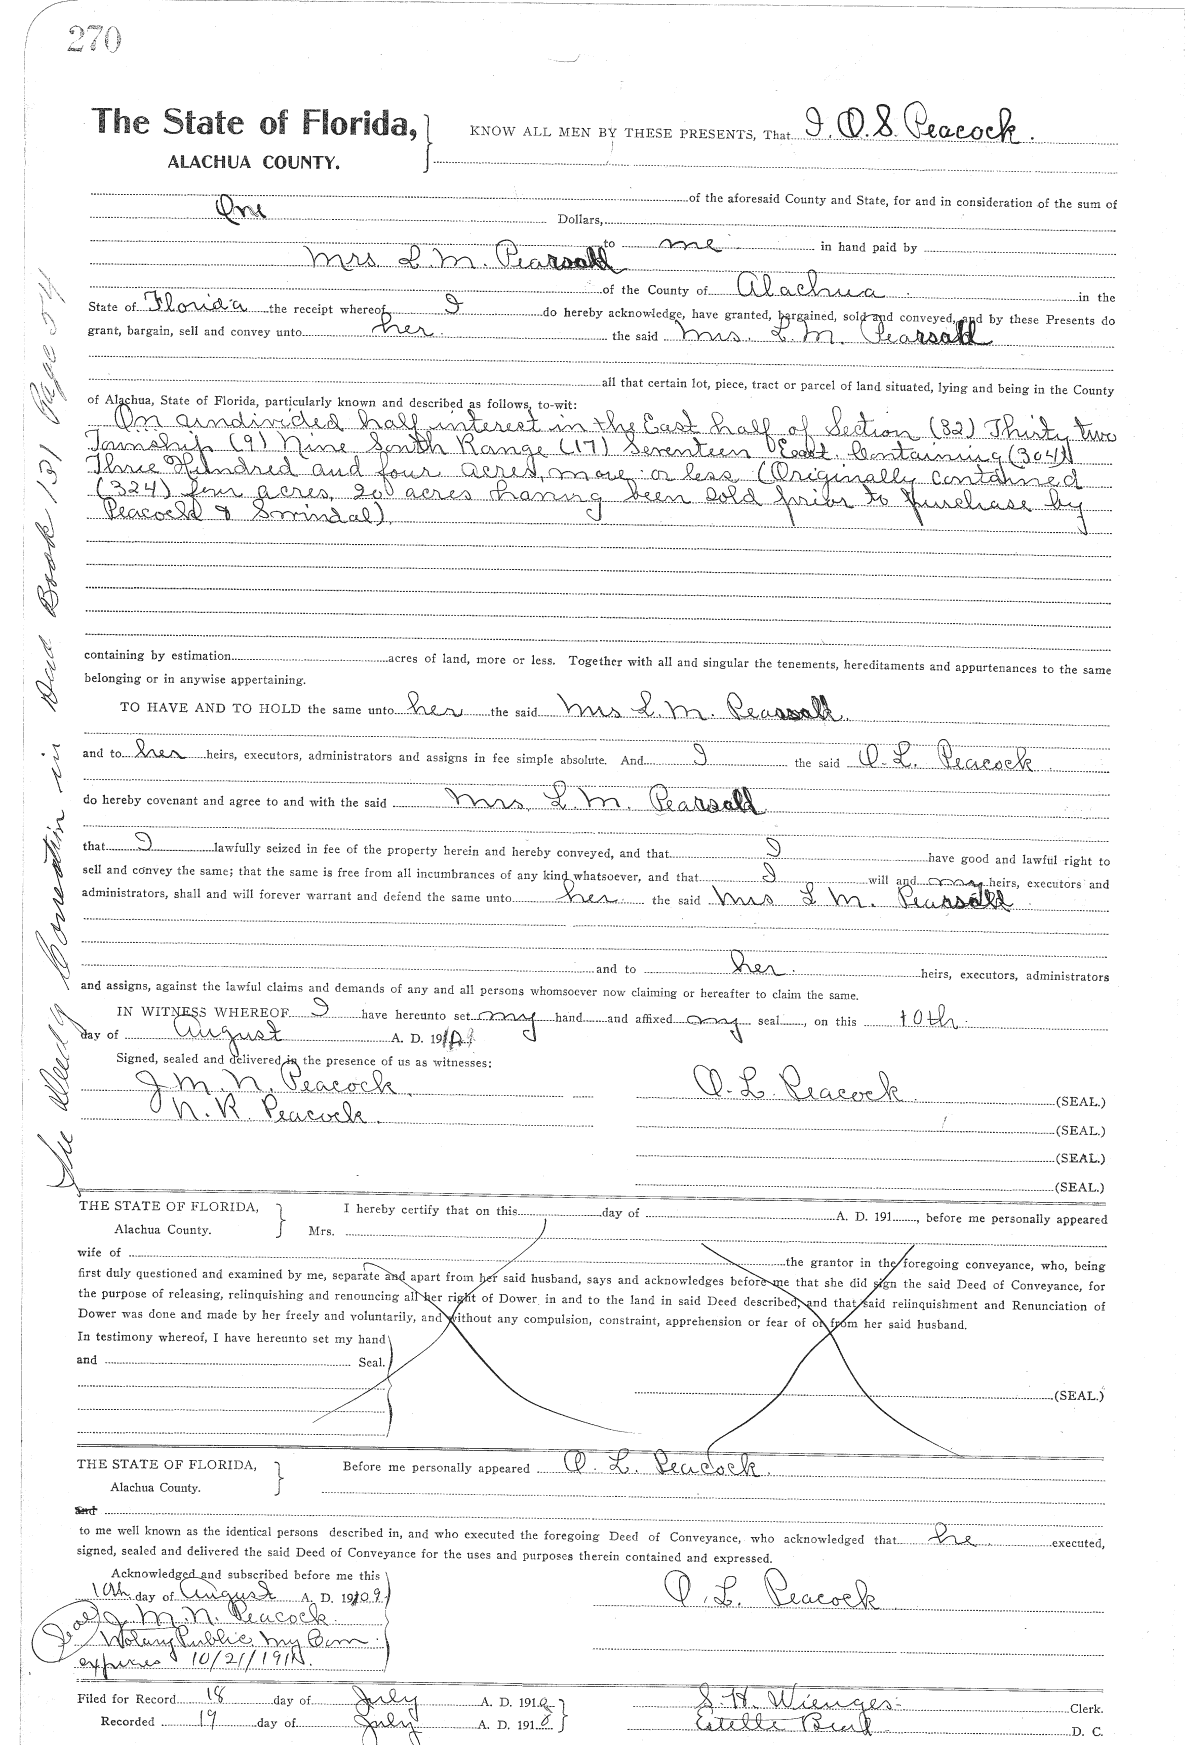 270
The State of Florida,
ALACHUA COUNTY.
KNOW ALL MEN BY THESE PRESENTS, That I, O. S. Peacock.
of the aforesaid County and State, for and in consideration of the sum of
One Dollars,
to me in hand paid by
Mrs L. M. Pearsall
of the County of Alachua in the
State of Florida the receipt whereof I do hereby acknowledge, have granted, bargained, sold and conveyed, and by these Presents do
grant, bargain, sell and convey unto her the said Mrs. L. M. Pearsall
all that certain lot, piece, tract or parcel of land situated, lying and being in the County
of Alachua, State of Florida, particularly known and described as follows, to-wit:
An undivided half interest in the East half of Section (32) Thirty two
Township (9) Nine South Range (17) Seventeen East. Containing (304)
Three Hundred and four acres, more or less (Originally contained
(324) four acres, 20 acres having been sold prior to purchase by
Peacock & Swindal).
containing by estimation acres of land, more or less. Together with all and singular the tenements, hereditaments and appurtenances to the same
belonging or in anywise appertaining.
TO HAVE AND TO HOLD the same unto her the said Mrs L. M. Pearsall
and to her heirs, executors, administrators and assigns in fee simple absolute. And I the said O. L. Peacock
do hereby covenant and agree to and with the said Mrs L M. Pearsall
that I lawfully seized in fee of the property herein and hereby conveyed, and that I have good and lawful right to
sell and convey the same; that the same is free from all incumbrances of any kind whatsoever, and that I will and my heirs, executors and
administrators, shall and will forever warrant and defend the same unto her the said Mrs L M. Pearsall
and to her heirs, executors, administrators
and assigns, against the lawful claims and demands of any and all persons whomsoever now claiming or hereafter to claim the same.
IN WITNESS WHEREOF I have hereunto set my hand and affixed my seal, on this 10th
day of August A. D. 19
Signed, sealed and delivered in the presence of us as witnesses:
J. M. N. Peacock
N. R. Peacock.
O. L. Peacock (SEAL.)
(SEAL.)
(SEAL.)
(SEAL.)
See Deed of Correction in Deed Book 131 Page 54
THE STATE OF FLORIDA,
Alachua County.
I hereby certify that on this day of A. D. 191, before me personally appeared
Mrs.
wife of the grantor in the foregoing conveyance, who, being
first duly questioned and examined by me, separate and apart from her said husband, says and acknowledges before me that she did sign the said Deed of Conveyance, for
the purpose of releasing, relinquishing and renouncing all her right of Dower in and to the land in said Deed described, and that said relinquishment and Renunciation of
Dower was done and made by her freely and voluntarily, and without any compulsion, constraint, apprehension or fear of or from her said husband.
In testimony whereof, I have hereunto set my hand
and Seal.
(SEAL.)
THE STATE OF FLORIDA,
Alachua County.
Before me personally appeared O. L. Peacock
and
to me well known as the identical persons described in, and who executed the foregoing Deed of Conveyance, who acknowledged that he executed,
signed, sealed and delivered the said Deed of Conveyance for the uses and purposes therein contained and expressed.
Acknowledged and subscribed before me this
10th day of August A. D. 1909
(Seal) J. M. N. Peacock
Notary Public My Com
expires 10/21/191
O. L. Peacock
Filed for Record 18 day of July A. D. 191
Recorded 19 day of July A. D. 191
S. H. Wienges Clerk.
Estelle D. C.